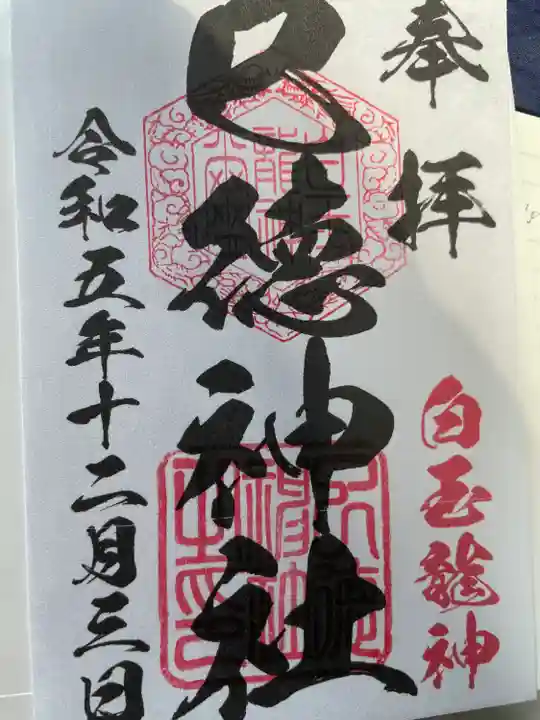 奉拝
白玉龍神
巳徳神社
令和五年十二月三日